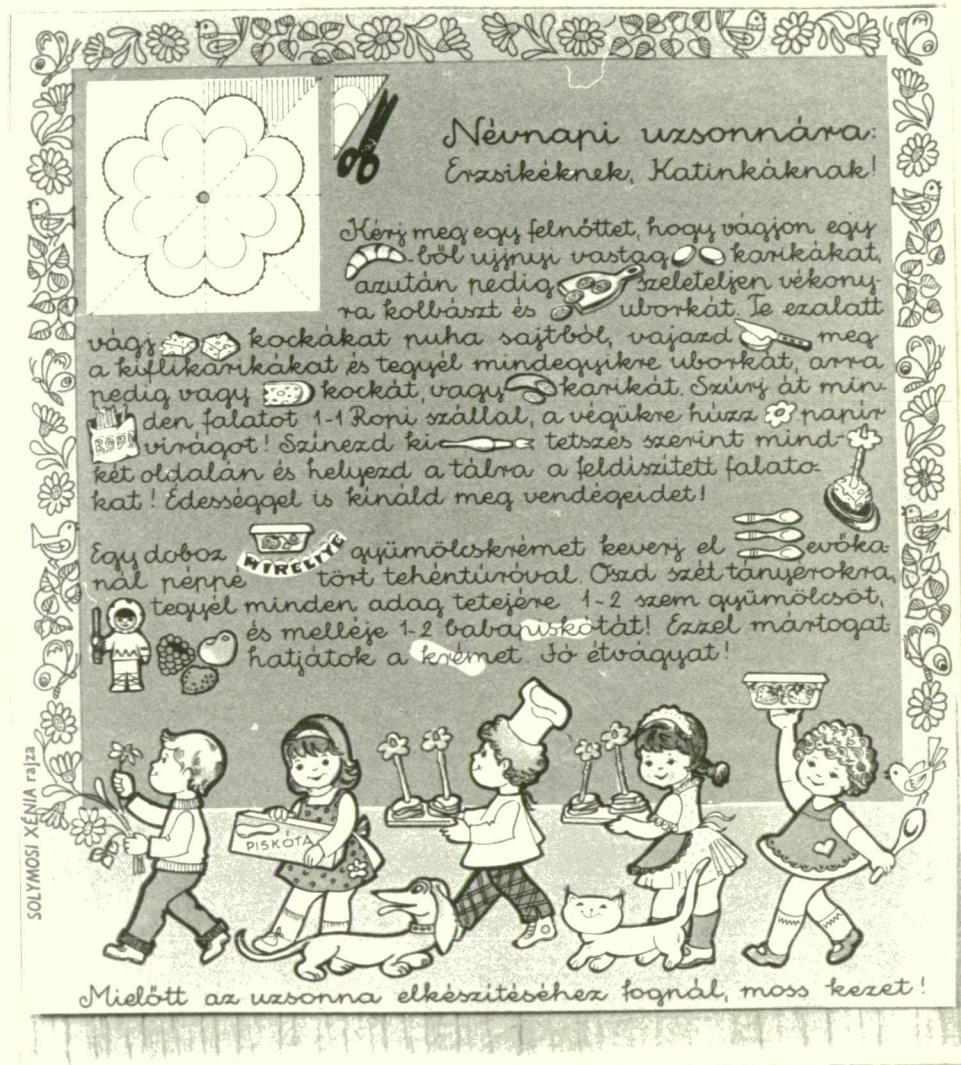 Névnapi uzsonnára:
Erzsikéknek, Katinkáknak!
Kérj meg egy felnőttet, hogy vágjon egy
-ből ujjnyi vastag karikákat,
azután pedig szeleteljen vékony-
ra kolbászt és uborkát. Te ezalatt
vágj kockákat puha sajtból, vajazd meg
a kiflikarikákat és tegyél mindegyikre uborkát, arra
pedig vagy kockát, vagy karikát. Szúrj át min-
den falatot 1-1 Ropi szállal, a végükre húzz papír
ROPI
virágot! Színezd ki tetszés szerint mind-
két oldalán és helyezd a tálra a feldíszített falato-
kat! Édességgel is kínáld meg vendégeidet!
Egy doboz MIRELITE gyümölcskrémet keverj el evőka-
nál péppé tört tehéntúróval. Oszd szét tányérokra,
tegyél minden adag tetejére 1-2 szem gyümölcsöt,
és melléje 1-2 babapiskótát! Ezzel mártogat
hatjátok a krémet. Jó étvágyat!
SOLYMOSI XÉNIA rajza
PISKÓTA
Mielőtt az uzsonna elkészítéséhez fognál, moss kezet!